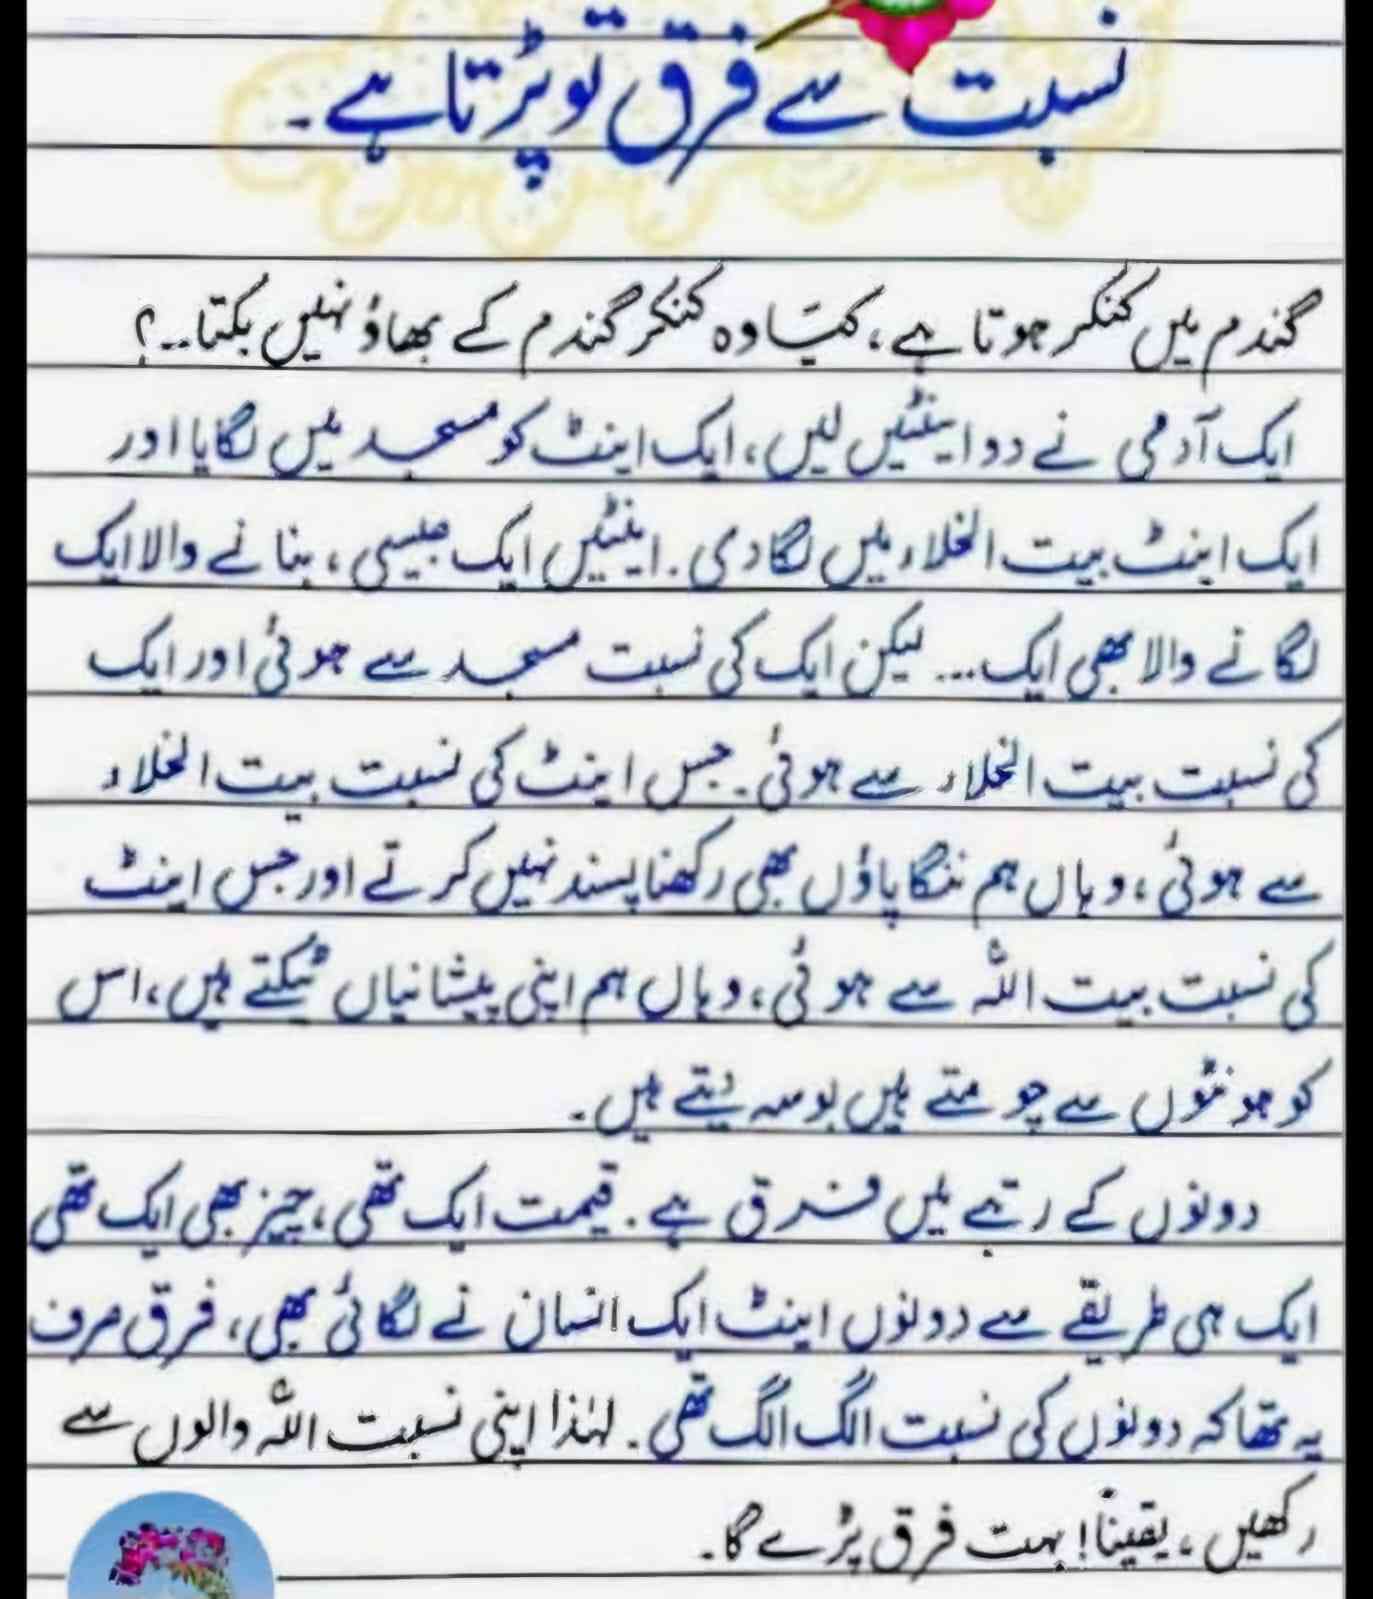 نسبت سے فرق تو پڑتا ہے۔
گندم میں کنکر ہوتا ہے، کیا وہ کنکر گندم کے بھاؤ نہیں بکتا..؟
ایک آدمی نے دو اینٹیں لیں، ایک اینٹ کو مسجد میں لگایا اور
ایک اینٹ بیت الخلاء میں لگا دی. اینٹیں ایک جیسی، بنانے والا ایک
لگانے والا بھی ایک... لیکن ایک کی نسبت مسجد سے ہوئی اور ایک
کی نسبت بیت الخلاء سے ہوئی۔ جس اینٹ کی نسبت بیت الخلاء
سے ہوئی، وہاں ہم ننگا پاؤں بھی رکھنا پسند نہیں کرتے اور جس اینٹ
کی نسبت بیت اللہ سے ہوئی، وہاں ہم اپنی پیشانیاں ٹیکتے ہیں، اس
کو ہونٹوں سے چومتے ہیں بوسہ دیتے ہیں۔
دونوں کے رتبے میں فرق ہے. قیمت ایک تھی، چیز بھی ایک تھی
ایک ہی طریقے سے دونوں اینٹ ایک انسان نے لگائی بھی، فرق صرف
یہ تھا کہ دونوں کی نسبت الگ الگ تھی۔ لہٰذا اپنی نسبت اللہ والوں سے
رکھیں، یقیناً! بہت فرق پڑے گا۔